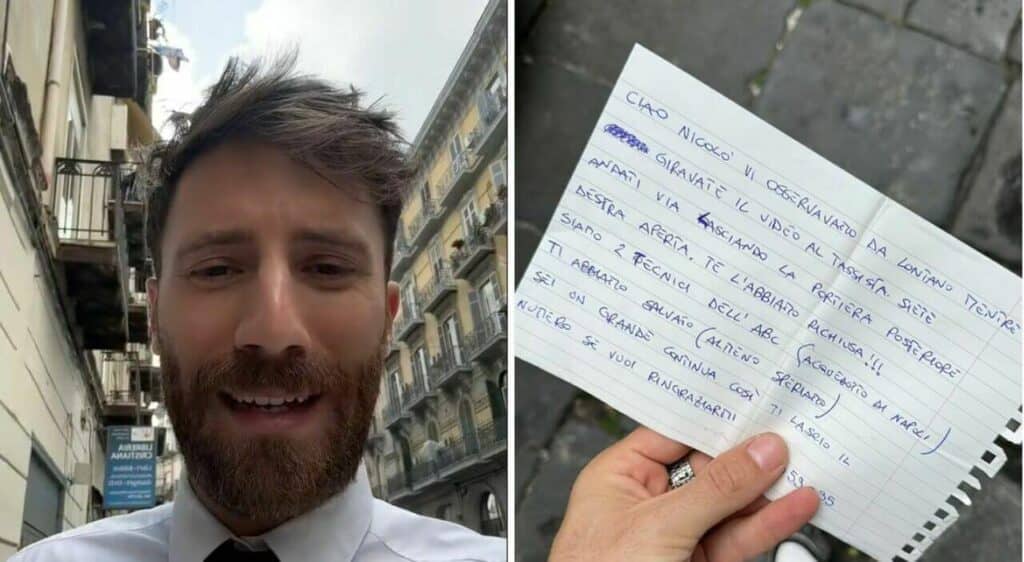 LIBRERIA
CRISTIANA
CIAO NICOLO' VI OSSERVAVAMO DA LONTANO MENTRE
GIRAVATE IL VIDEO AL TASSISTA. SIETE
ANDATI VIA LASCIANDO LA PORTIERA POSTERIORE
DESTRA APERTA. TE L'ABBIAMO RICHIUSA!!!
SIAMO 2 TECNICI DELL'ABC (ACQUEDOTTO DI NAPOLI)
TI ABBIAMO SALVATO (ALMENO SPERIAMO)
SEI UN GRANDE CONTINUA COSI' TI LASCIO IL
NUMERO SE VUOI RINGRAZIARMI